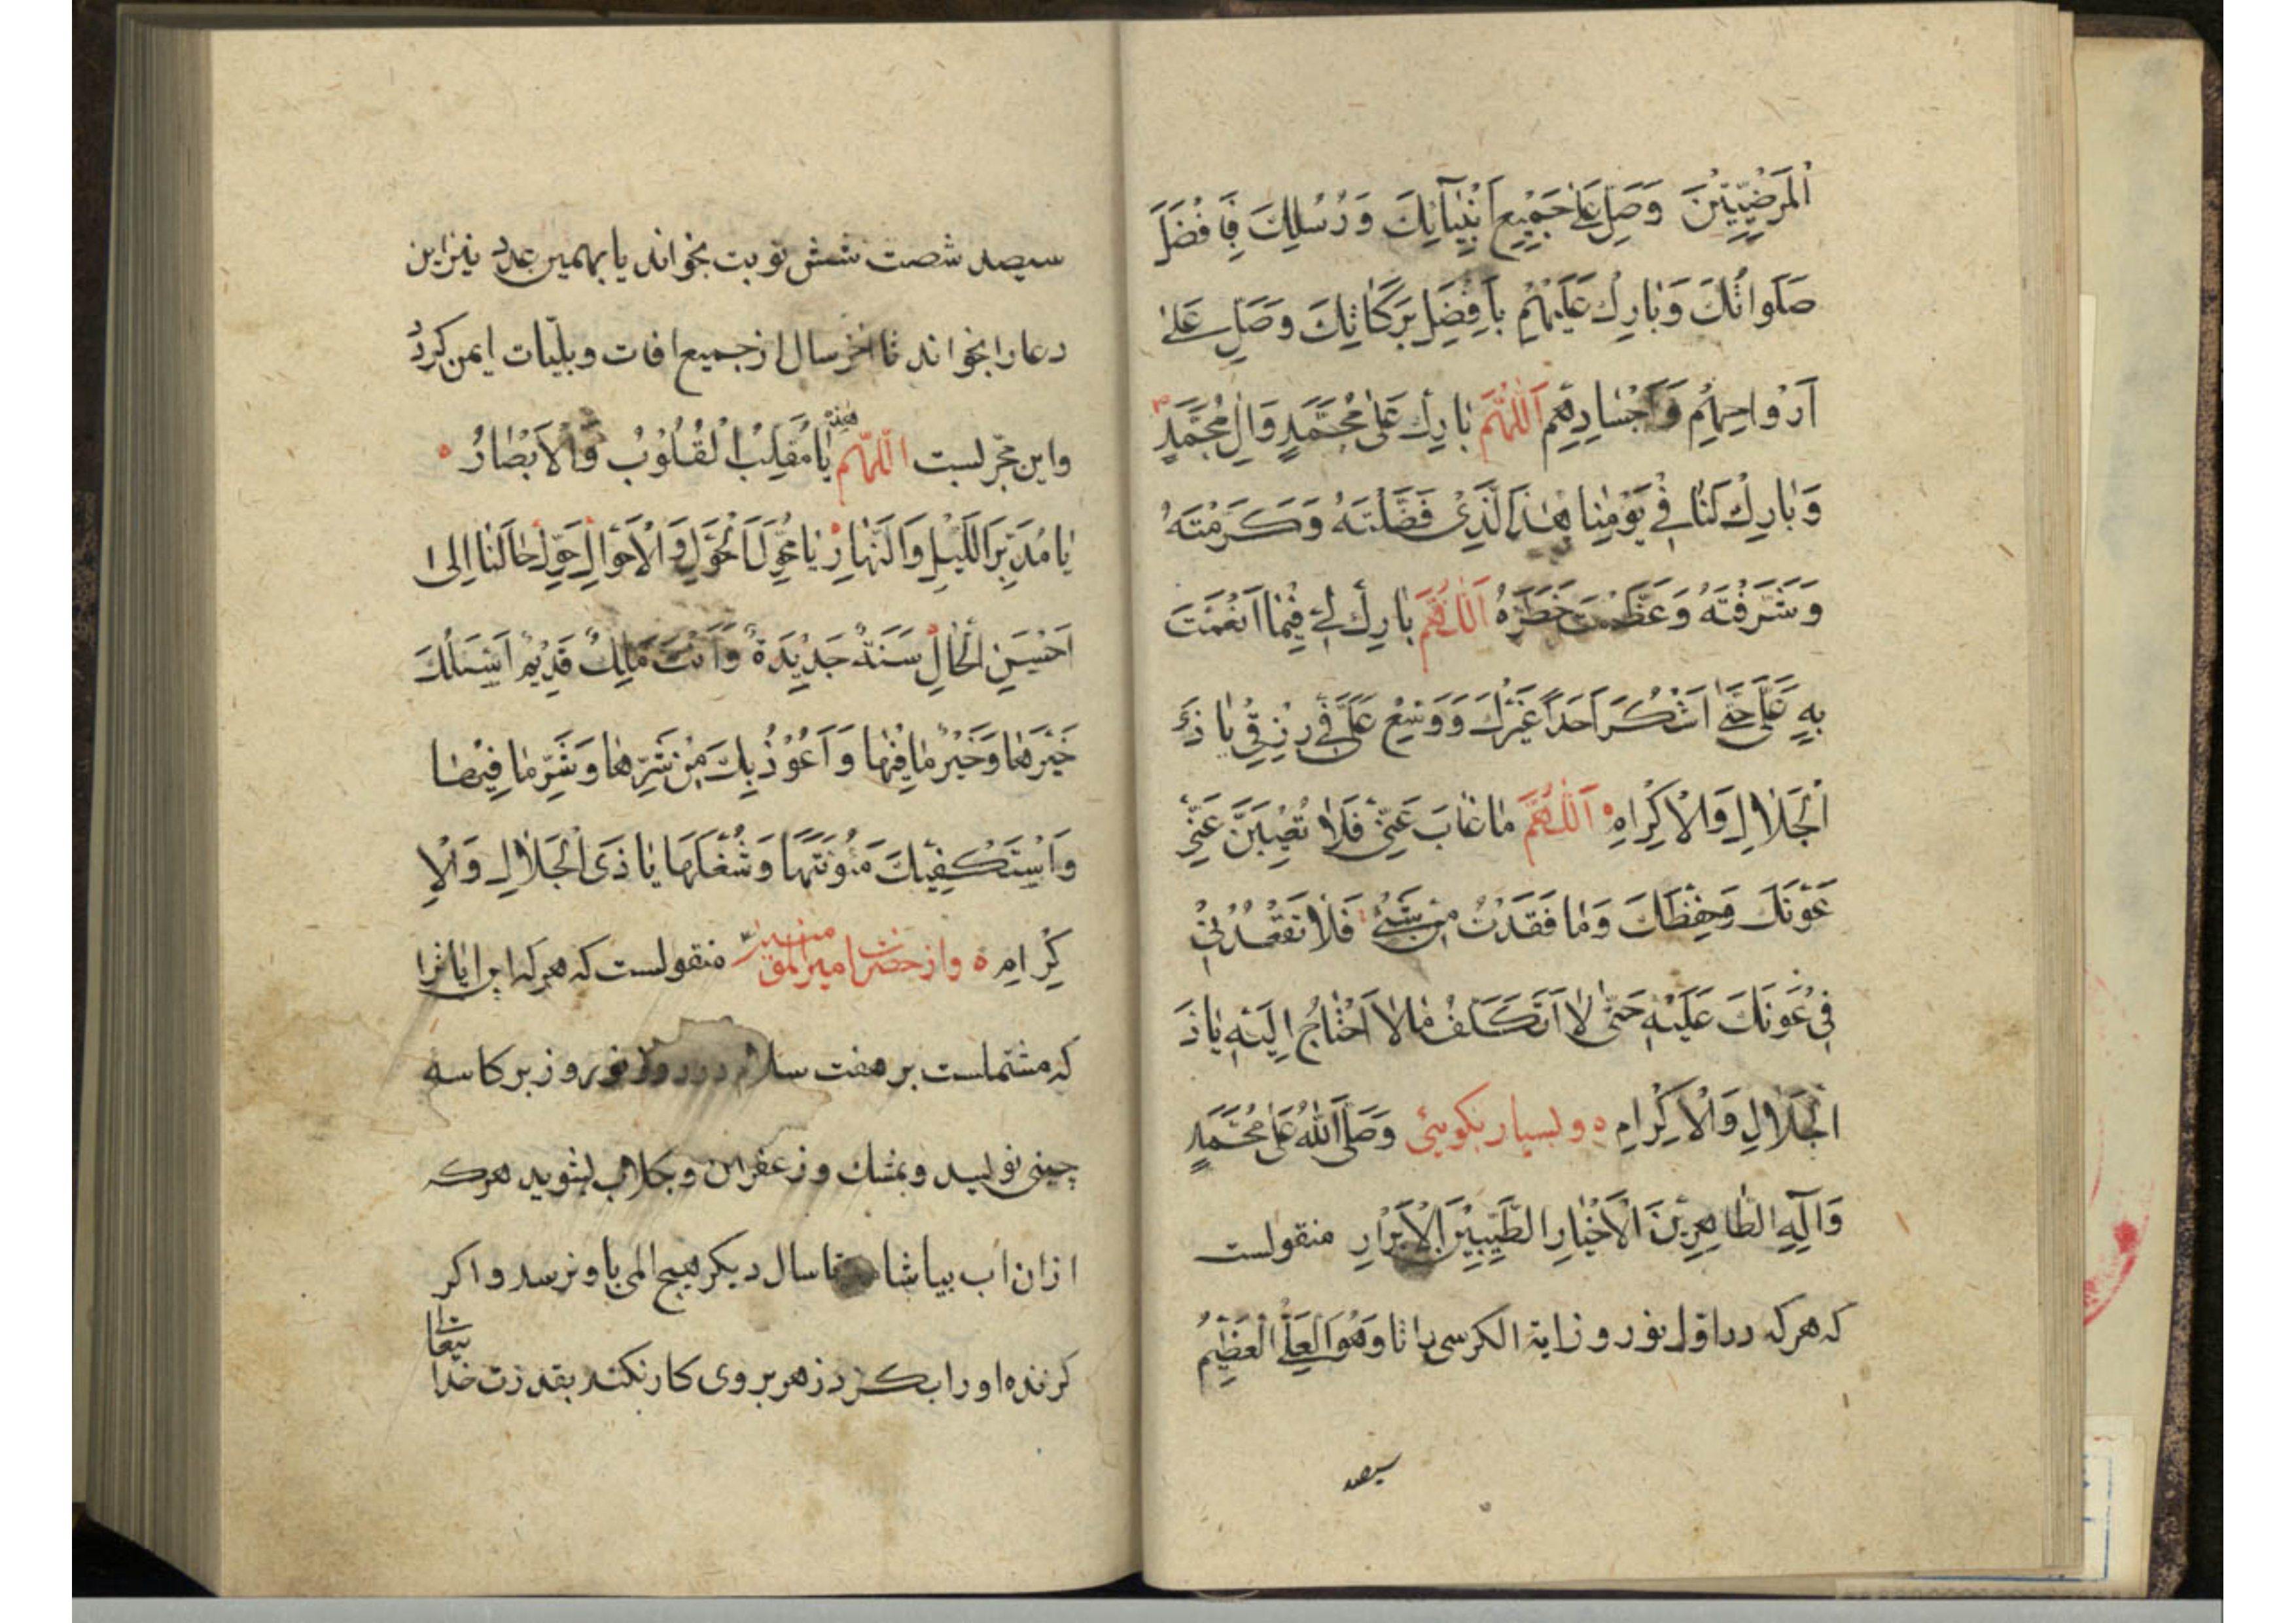 اَلْمَرْضِيِّيْنَ وَصَلِّ عَلٰى جَمِيْعِ اَنْبِيٰآئِكَ وَرُسُلِكَ بِاَفْضَلَ
صَلَوٰاتُكَ وَبٰارِكْ عَلَيْهِمْ بِاَفْضَلِ بَرَكٰاتِكَ وَصَلِّ عَلىٰ
اَرْوٰاحِهِمْ وَاَجْسٰادِهِمْ اَللّٰهُمَّ بٰارِكْ عَلىٰ مُحَمَّدٍ وَاٰلِ مُحَمَّدٍ
وَبٰارِكْ لَنٰا فِيْ يَوْمِنٰا هٰذَا الَّذِىْ فَضَّلْتَهُ وَكَرَّمْتَهُ
وَشَرَّفْتَهُ وَعَظَّمْتَ خَطَرَهُ اَللّٰهُمَّ بٰارِكْ لِيْ فِيْمٰا اَنْعَمْتَ
بِهِ عَلَيَّ حَتّٰى اَشْكُرَ اَحَداً غَيْرَكَ وَوَسِّعْ عَلَيَّ فِيْ رِزْقِيْ يٰا ذَىْ
الْجَلاٰلِ وَالْاِكْرٰامِ اَللّٰهُمَّ مٰا غٰابَ عَنِّيْ فَلاٰ تُغِيْبَنَّ عَنِّيْ
عَوْنَكَ وَحِفْظَكَ وَمٰا فَقَدْتُ مِنْ شَيْءٍ فَلاٰ تَفْقُدْنِيْ
فِيْ عَوْنَكَ عَلَيْهِ حَتّٰى لاٰ اَتَكَلَّفُ مٰا لاٰ اَحْتٰاجُ اِلَيْهِ يٰا ذَ
الْجَلاٰلِ وَالْاِكْرٰامِ ه وبسيار بكويىٔ وَصَلَّى اللّٰهُ عَلىٰ مُحَمَّدٍ
وَاٰلِهِ الطّٰاهِرِيْنَ الْاَخْيٰارِ الطَّيِّبِيْنَ الْاَبْرٰارِ منقولست
كه هركه در اوّل نوروز اية الكرسى را تا وَهُوَ الْعَلِىُّ الْعَظِيْمُ
سيصد
سيصد شصت شش نوبت بخواند يا بهمين عدد نيز اين
دعا را بخواند تا اخر سال از جميع افات و بليّات ايمن كردد
واين مجرّبست اللّٰهمّ يٰا مُقَلِّبَ الْقُلُوْبُ وَالْاَبْصٰارُ ه
يٰا مُدَبِّرَ اللَّيْلِ وَالنَّهٰارِ يٰا مُحَوِّلَ الْحَوْلِ وَالْاَحْوٰالِ حَوِّلْ حٰالَنٰا اِلىٰ
اَحْسَنِ الْحٰالِ سَنَةً جَدِيْدَةً وَاَنْتَ مَلِكٌ قَدِيْمٌ اَسْئَلُكَ
خَيْرَهٰا وَخَيْرُ مٰا فِيْهٰا وَاَعُوْذُ بِكَ مِنْ شَرِّهٰا وَشَرِّ مٰا فِيْهٰا
وَاَسْتَكْفِيْكَ مَئُونَتَهٰا وَشُغْلَهٰا يٰا ذَى الْجَلاٰلِ وَالْاِ
كْرٰامِ ه واز حضرت امير المؤمنين منقولست كه هركه اين اياترا
كه مشتملست بر هفت سلام در روز نوروز بر كاسه
چينى نويسد وبمشك وزعفران وبكلاب بشويد هركه
ازان اب بياشامد تا سال ديكر هيچ المى باو نرسد واكر
كزنده او را بكزد زهر بر وى كار نكند بقدرت خدا
تيعالى